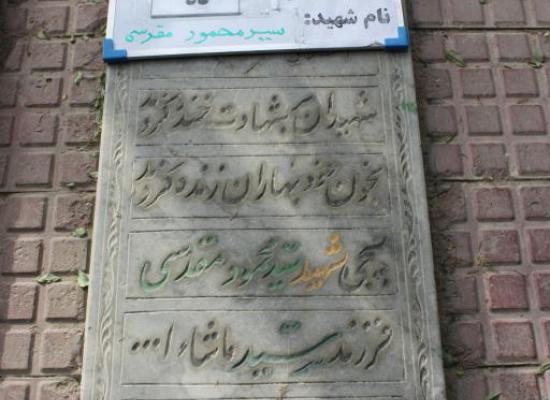 نام شهید:
سیدمحمود مقدسی
شهیدان کبشهادت خنده کردند
بخون خود بهاران زنده کردند
بسیجی شهید سید محمود مقدسی
فرزند سید ماشاء ا...